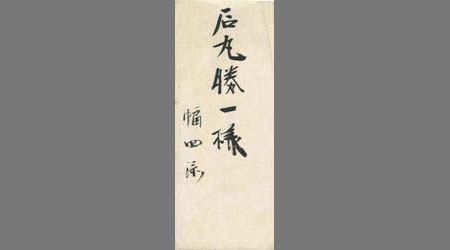 石丸勝一様
幅四